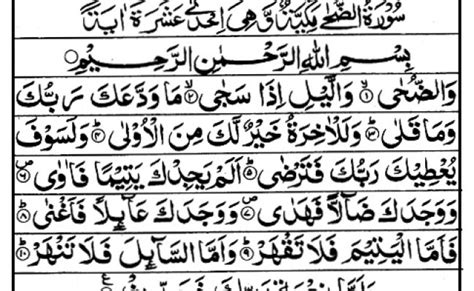 سُوْرَةُ الضُّحٰى مَكِّيَّةٌ وَّهِيَ اِحْدٰى عَشْرَةَ اٰيَةً
بِسْمِ اللّٰهِ الرَّحْمٰنِ الرَّحِيْمِ
وَالضُّحٰى ۙ﴿۱﴾ وَالَّيْلِ اِذَا سَجٰى ۙ﴿۲﴾ مَا وَدَّعَكَ رَبُّكَ
وَمَا قَلٰى ؕ﴿۳﴾ وَلَلْاٰخِرَةُ خَيْرٌ لَّكَ مِنَ الْاُوْلٰى ؕ﴿۴﴾ وَلَسَوْفَ
يُعْطِيْكَ رَبُّكَ فَتَرْضٰى ؕ﴿۵﴾ اَلَمْ يَجِدْكَ يَتِيْمًا فَاٰوٰى ۪﴿۶﴾
وَوَجَدَكَ ضَآلًّا فَهَدٰى ۪﴿۷﴾ وَوَجَدَكَ عَآىِٕلًا فَاَغْنٰى ؕ﴿۸﴾
فَاَمَّا الْيَتِيْمَ فَلَا تَقْهَرْ ؕ﴿۹﴾ وَاَمَّا السَّآىِٕلَ فَلَا تَنْهَرْ ؕ﴿۱۰﴾